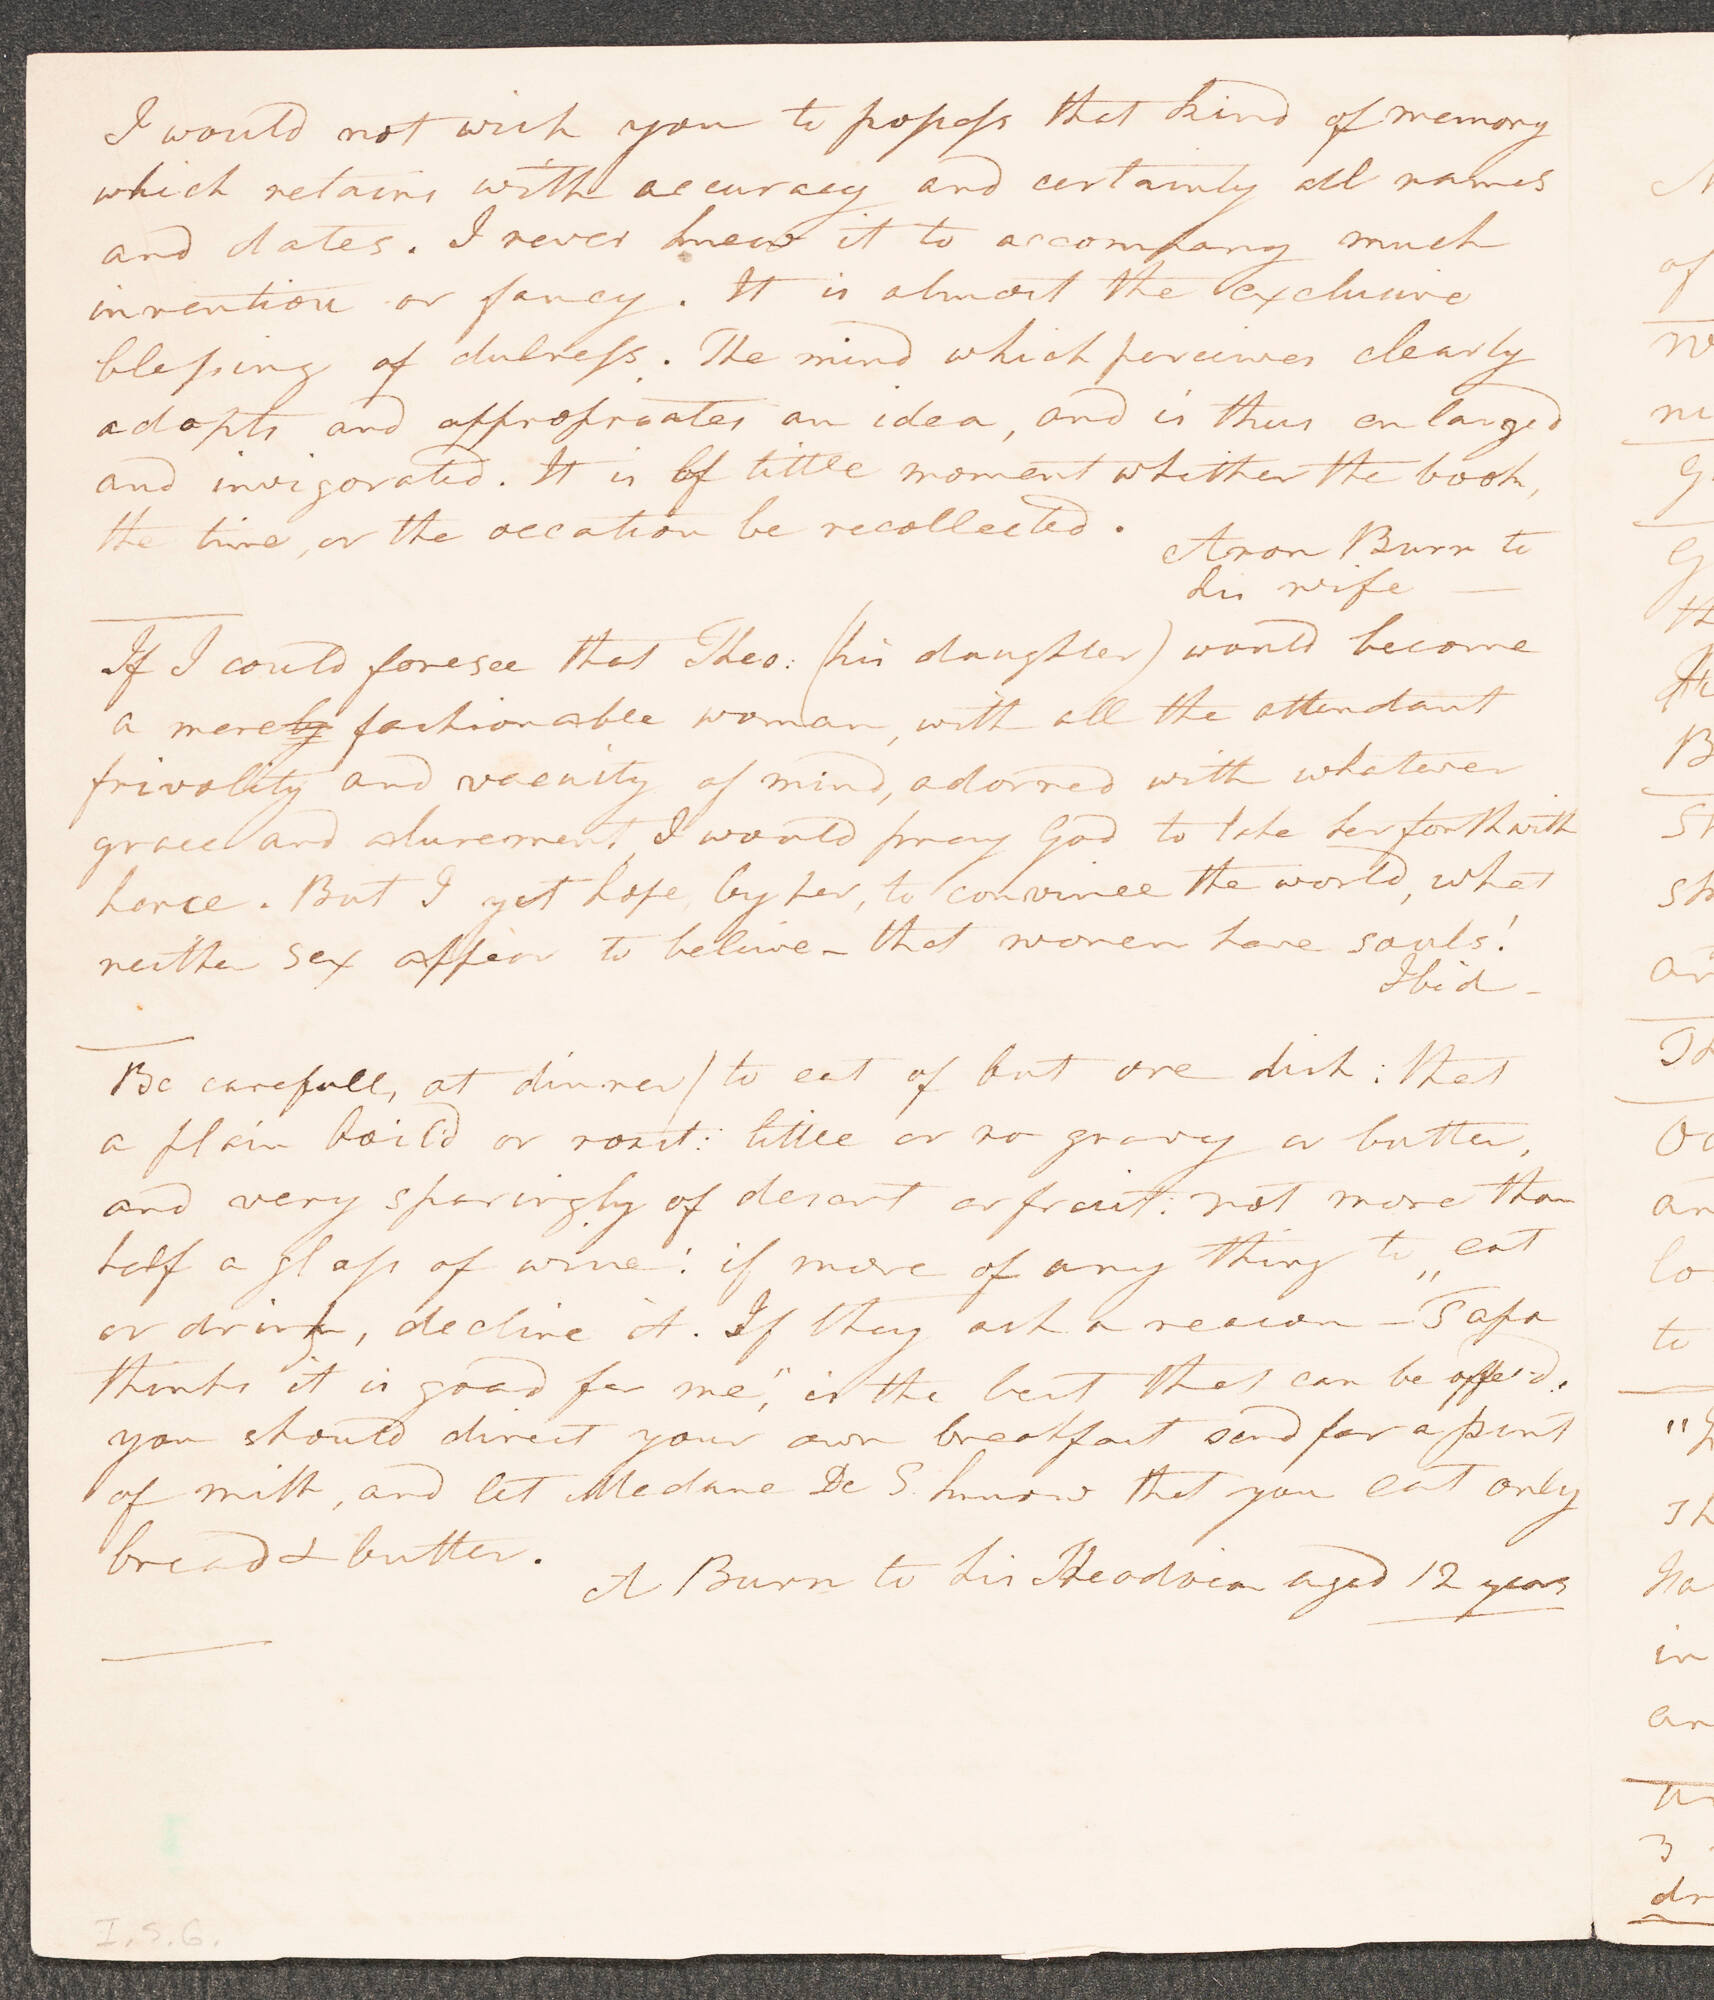 I would not wish you to possess that kind of memory
which retains with accuracy and certainty all names
and dates. I never knew it to accompany much
invention or fancy. It is almost the exclusive
blessing of dulness. The mind which perceives clearly
adopts and appropriates an idea, and is thus enlarged
and invigorated. It is of little moment whether the book,
the time, or the occation be recollected.
Aron Burr to
his wife —
If I could foresee that Theo: (his daughter) would become
a merely fashionable woman, with all the attendant
frivolity and vacuity of mind, adorned with whatever
grace and alurement, I would pray God to take her forthwith
hence. But I yet hope, by her, to convince the world, what
neither sex appear to believe - that women have souls!
Ibid -
Be carefull, at dinner) to eat of but one dish: that
a plain boil'd or roast: little or no gravy or butter,
and very sparingly of desert or fruit: not more than
half a glass of wine: if more of any thing to eat
or drink, decline it. If they ask a reason - "Papa
thinks it is good for me," is the best that can be offer'd.
you should direct your own breakfast send for a pint
of milk, and let Madame De S. know that you eat only
bread & butter.
A Burr to his Theodosia aged 12 years
I.S.G.
of
"
to
in
3